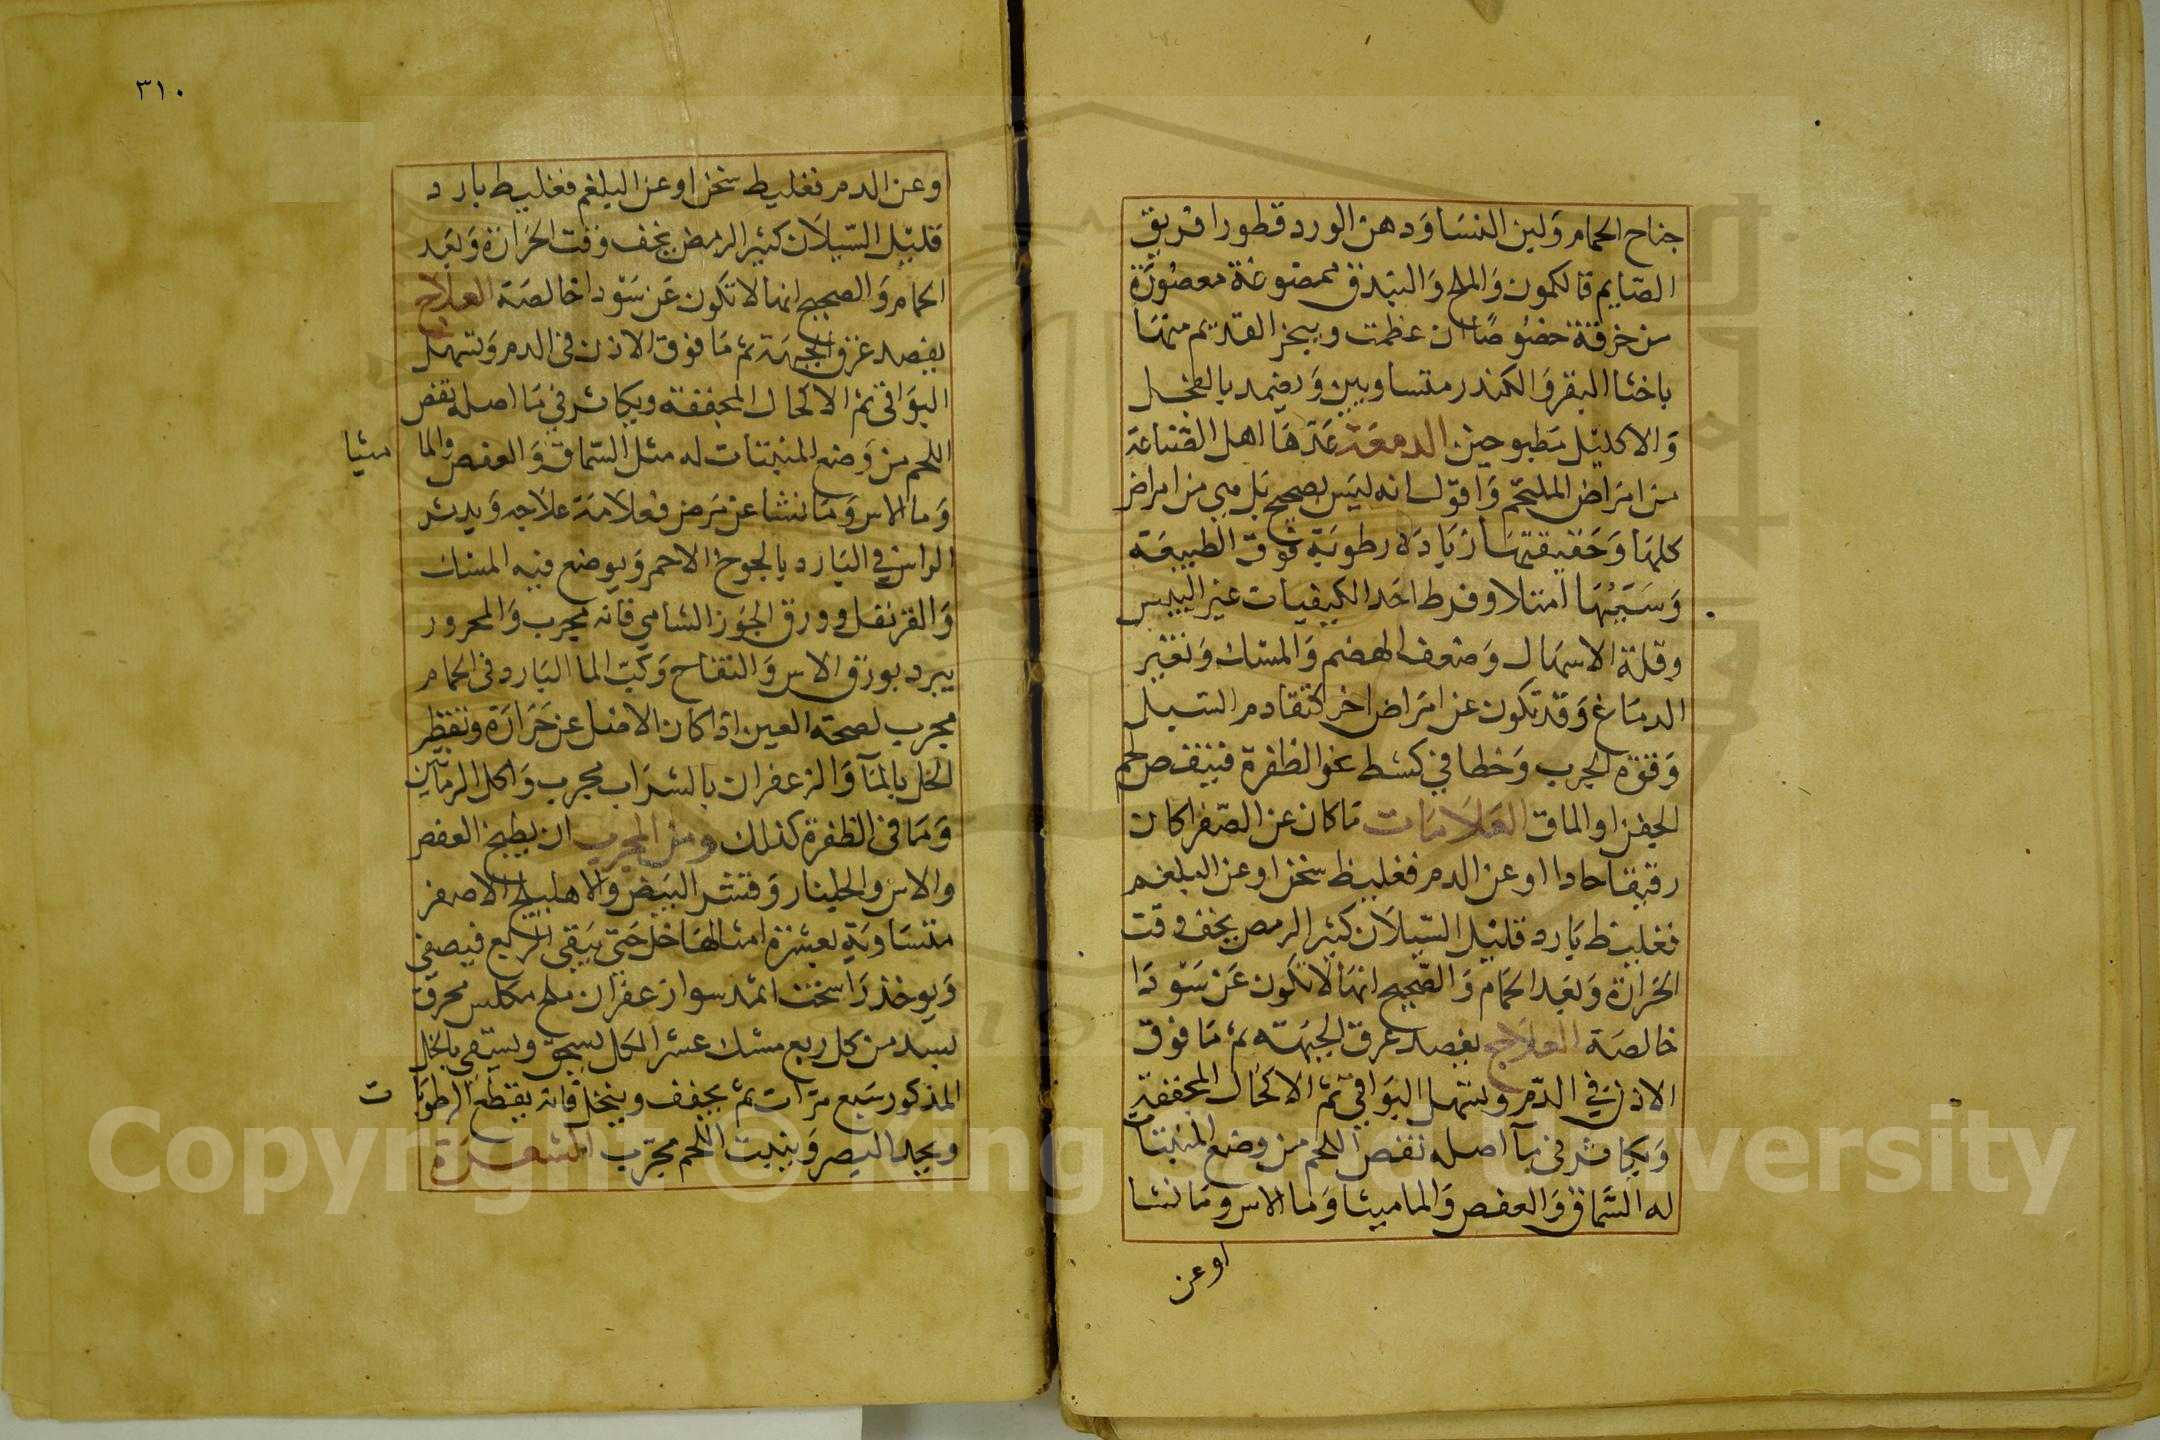 جناح الحمام ولبن النسا ودهن الورد قطورا فريق
الصايم فالكمون والملح والبندق ممضوغة معصورة
من خرقة خصوصا ان عظمت ويبخر القديم منها
باخثا البقر والكندر متساويين ويضمد بالفجل
والاكليل مطبوخين الدمعة عدها اهل الصناعة
من امراض الملتحم واقول انه ليس بصحيح بل هي من امراض
كلها وحقيقتها زيادة رطوبة فوق الطبيعة
وسببها امتلا وفرط احد الكيفيات غير اليبس
وقلة الاسهال وضعف الهضم والمسك وتغير
الدماغ وقد تكون عن امراض اخر كتقادم السبل
وقوة الجرب وخطا في كشط نحو الظفرة فينقص لحم
الجفن او الماق العلامات ما كان عن الصفرا كان
رقيقا حادا او عن الدم فغليظ سخن او عن البلغم
فغليظ بارد قليل السيلان كثير الرمص يخف وقت
الحرارة وبعد الحمام والصحيح انها لا تكون عن سودا
خالصة العلاج يفصد عرق الجبهة ثم ما فوق
الاذن في الدم وتسهل البواقي ثم الاكحال المجففة
ويكاثر في ما اصله نقص اللحم من وضع المنبتات
له السماق والعفص والماميثا وما الاس وما نشا
او عن
٣١٠
وعن الدم فغليظ سخن او عن البلغم فغليظ بارد
قليل السيلان كثير الرمص يخف وقت الحرارة وبعد
الحمام والصحيح انها لا تكون عن سودا خالصة العلاج
يفصد عرق الجبهة ثم ما فوق الاذن في الدم وتسهل
البواقي ثم الاكحال المجففة ويكاثر في ما اصله نقص
اللحم من وضع المنبتات له مثل السماق والعفص والما ميثا
وما الاس وما نشا عن مرض فعلامة علاجه ويدثر
الراس في البارد بالجوخ الاحمر ويوضع فيه المسك
والقرنفل وورق الجوز الشامي فانه مجرب والمحرور
يبرد بورق الاس والتفاح وكب الما البارد في الحمام
مجرب لصحة العين اذا كان الاصل عن حرارة وتقطير
الخل بالما والزعفران بالشراب مجرب واكل الرمانين
وما في الظفرة كذلك ومن المجرب ان يطبخ العفص
والاس والجلنار وقشر البيض والاهليلج الاصفر
متساوية بعشرة امثالها خل حتى يبقى الربع فيصفى
ويوخذ راسخت اثمد سوا زعفران ملح مكلس محرق
لسد من كل ربع مسك عشر الكل يسحق ويسقى بالخل
المذكور سبع مرات ثم يجفف وينخل فانه يقطع الرطوبا ت
ويحد البصر وينبت اللحم مجرب الشعرة
Copyright © King Saud University